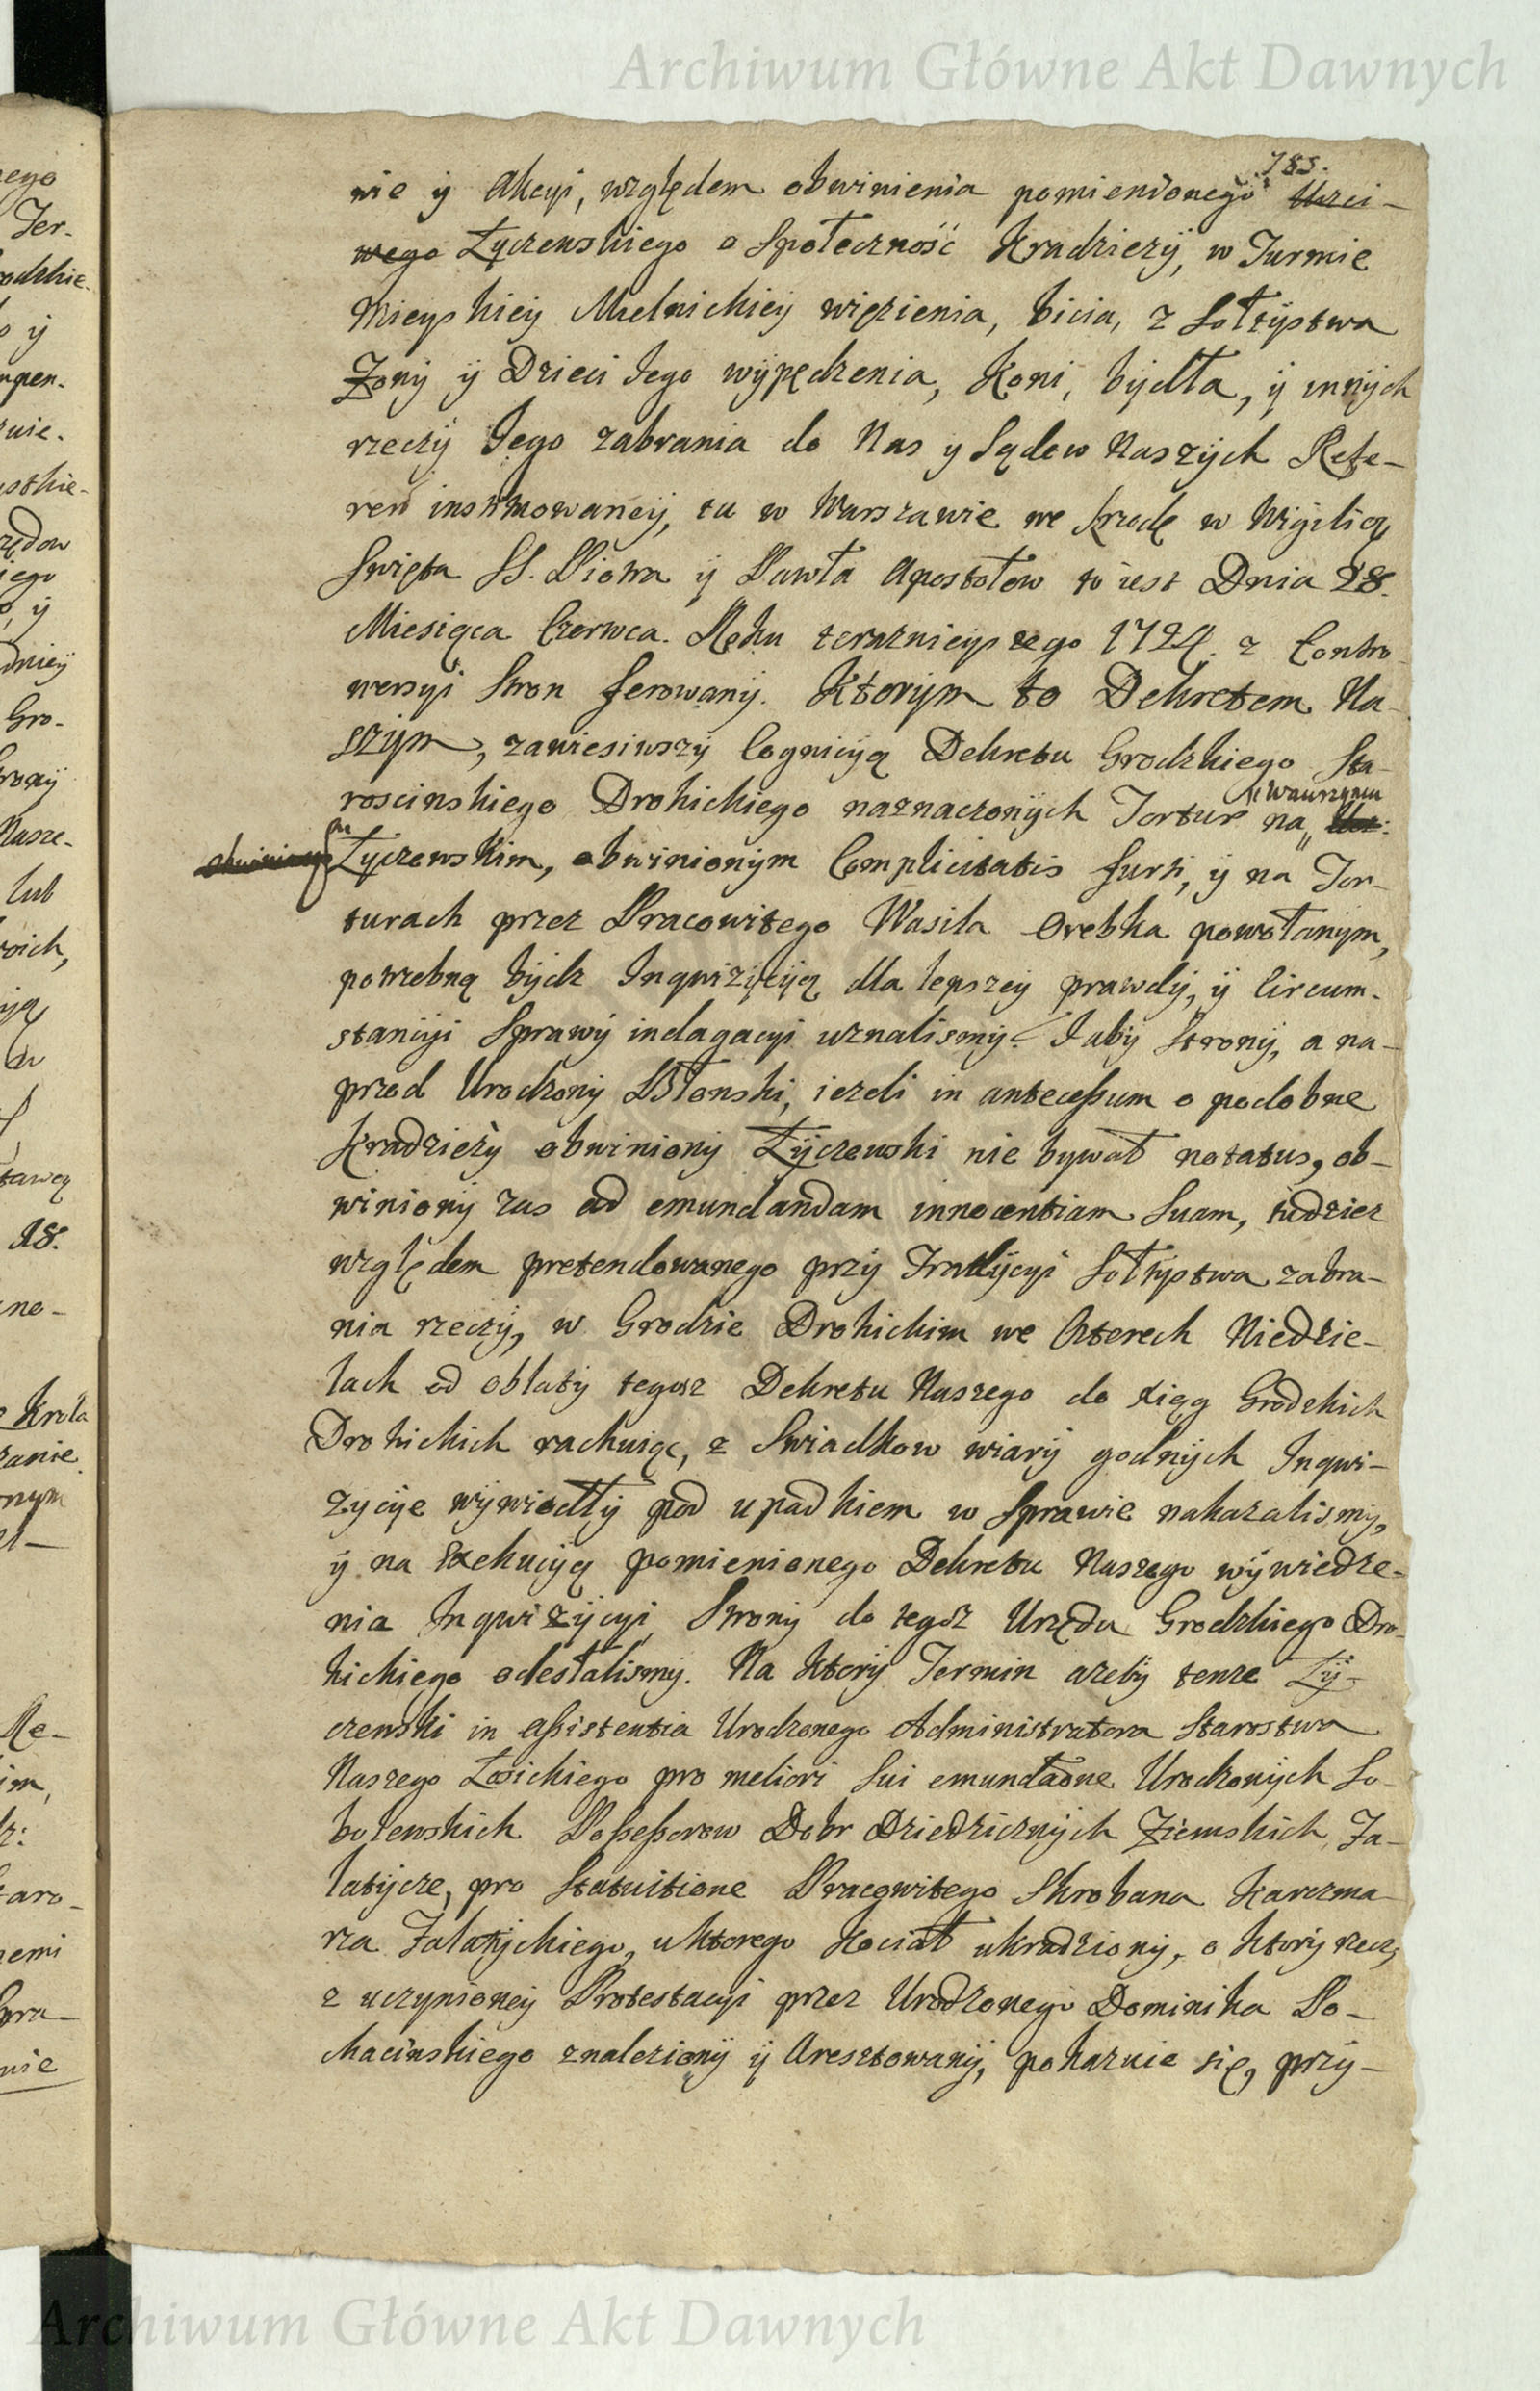 Archiwum Główne Akt Dawnych
785.
nie ÿ Akcyi, względem obwinienia pomienionego Uczci-
wego Łyczewskiego o Społeczność Kradzieżÿ, w Turmie
Mieyskiey Mielnickieÿ więzienia, bicia, z Sołtÿstwa
Żonÿ ÿ Dzieci Jego wÿpędzenia, Koni, bÿdła, ÿ innÿch
rzeczÿ Jego zabrania do Nas y Sądow Naszÿch Refe-
ren instÿmowaneÿ, tu w Warszawie we szrodę w Wigilią
Swięta SS. Piotra ÿ Pawła Apostołow to iest Dnia 28.
Miesiąca Czerwca. Roku teraznieyszego 1724. z Contro-
wersyi Stron ferowanÿ. Ktorÿm to Dekretem Na-
szÿm, zawiesiwszÿ Cognicÿą Dekretu Grodzkiego Sta-
roscinskiego Drohickiego naznaczonÿch Tortur na
Wawrzyncu
Łyczewskim, obwinionÿm Complicitatis furti, ÿ na Tor-
turach przez Pracowitego Wasila Orebka powołanÿm,
potrzebną bÿdz Inqwizÿcÿą dla lepszeÿ prawdÿ, ÿ Circum-
stancÿi Sprawÿ indagacyi uznalismÿ. Jaby Stronÿ, a na-
przod Urodzonÿ Błonski, iezeli in antecessum o podobne
Kradzieżÿ obwinionÿ Łÿczewski nie bywał notatus, ob-
winionÿ zas ad emundandam innocentiam Suam, tudziez
względem pretendowanego przÿ Tradÿcyi Sołtÿstwa zabra-
nia rzeczÿ, w Grodzie Drohickim we Czterech Niedzie-
lach od oblatÿ tegosz Dekretu Naszego do Xiąg Grodzkich
Drohickich rachuiąc, z Swiadkow wiarÿ godnÿch Inqwi-
zycÿe wÿwiodłÿ pod upadkiem w Sprawie nakazalismÿ,
ÿ na Exekucÿą pomienionego Dekretu Naszego wÿwiedze-
nia Inqwizÿcyi, Stronÿ do tegosz Urzędu Grodzkiego Dro-
hickiego odesłalismÿ. Na ktorÿ Termin azebÿ tenze Łÿ-
czewski in assistentia Urodzonego Administratora Starostwa
Naszego Łosickiego pro meliori sui emundaone Urodzonÿch So-
bolewskich Possessorow Dobr Dziedzicznÿch Ziemskich, Za-
latÿcze, pro Statuitione Pracowitego Skrobana Karczma-
rza Zalatÿckiego, u ktorego Kociał ukradzionÿ, o ktorÿ rzecz,
z uczynioneÿ Protestacyi przez Urodzonego Dominika Po-
chacinskiego znalezionÿ ÿ Aresztowanÿ, pokazuie się, przÿ-
Archiwum Główne Akt Dawnych